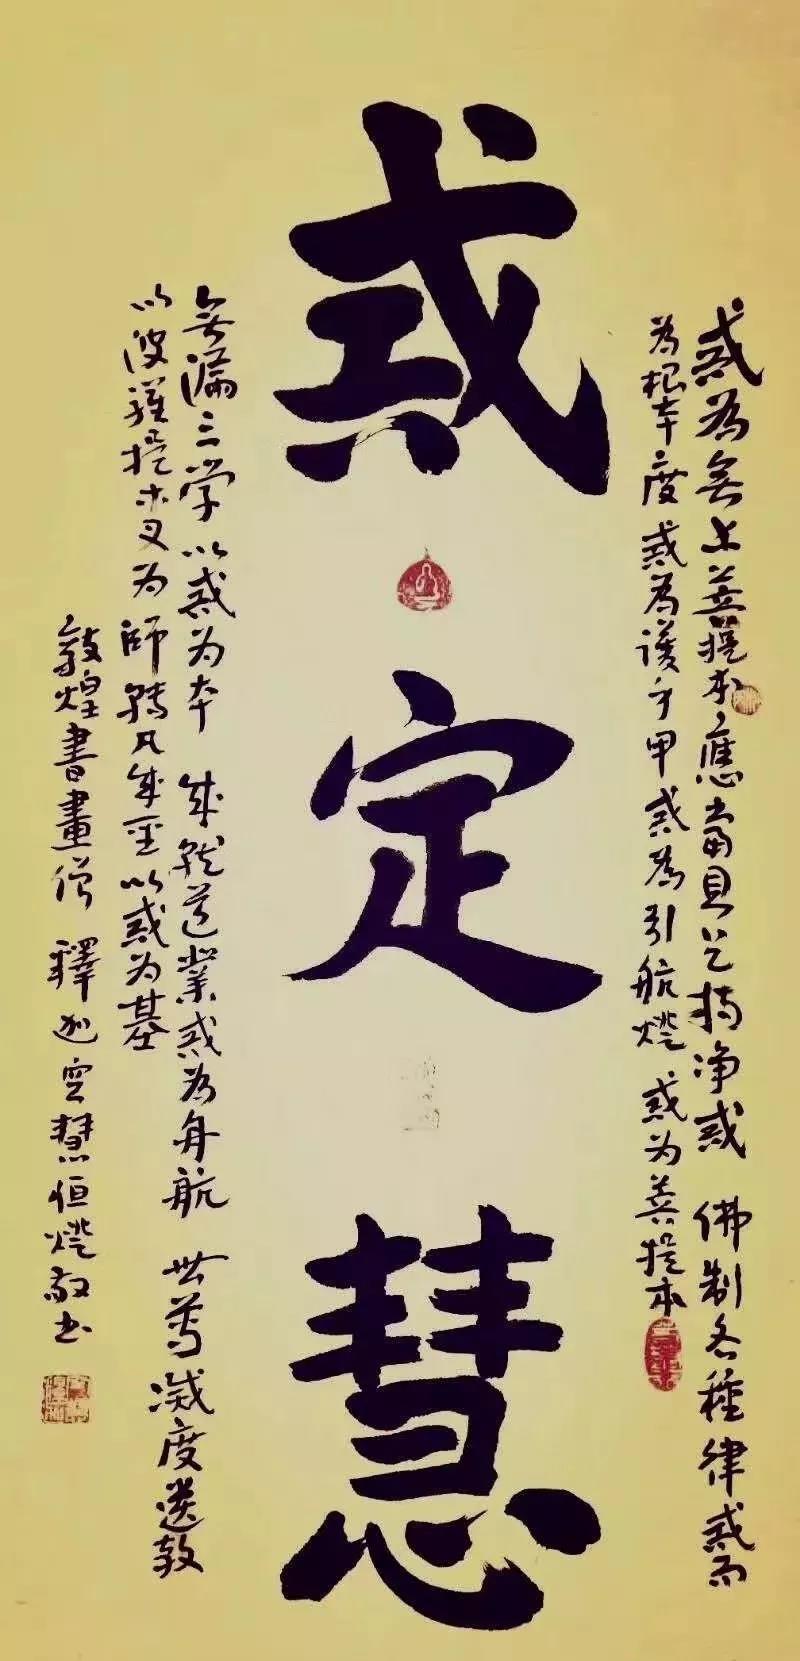 戒為無上菩提本應當具足持净戒 佛制各種律戒而
為根本度戒為護身甲戒為引航燈戒为菩提本
戒定慧
無漏三学以戒为本 成就道業戒為舟航 世尊滅度遺教
以波羅提木叉为師轉凡成圣以戒为基
敦煌書畫僧 釋迦空慧恒燈敬书